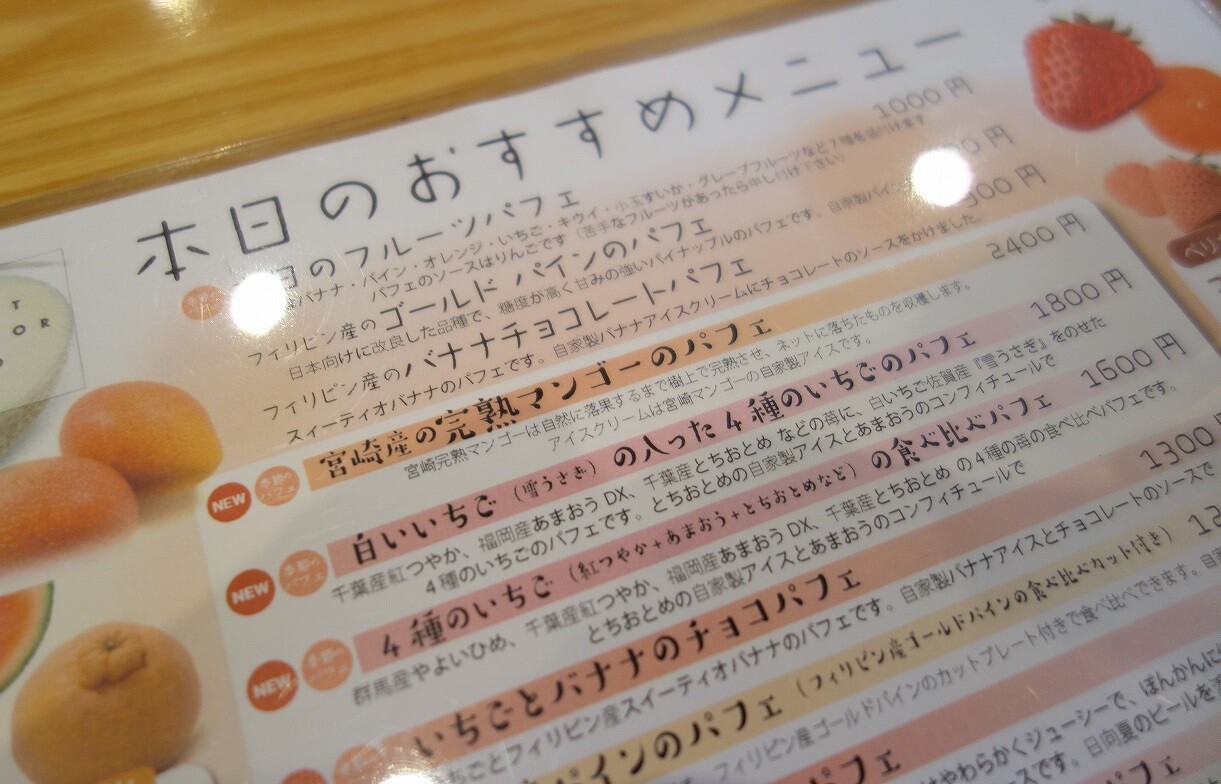 本日のおすすめメニュー
日のフルーツパフェ 1000 円
バナナ・パイン・オレンジ・いちご・キウイ・小玉すいか・グレープフルーツなど7種を
パフェのソースはりんごです（苦手なフルーツがあったら申し付け下さい）
フィリピン産のゴールドパインのパフェ 円
日本向けに改良した品種で、糖度が高く甘みの強いパイナップルのパフェです。自家製パイン
フィリピン産のバナナチョコレートパフェ 00 円
スイーティオバナナのパフェです。自家製バナナアイスクリームにチョコレートのソースをかけました。
NEW 季節のパフェ 宮崎産の完熟マンゴーのパフェ 2400 円
宮崎完熟マンゴーは自然に落果するまで樹上で完熟させ、ネットに落ちたものを収穫します。
アイスクリームは宮崎マンゴーの自家製アイスです。
NEW 季節のパフェ 白いいちご（雪うさぎ）の入った4種のいちごのパフェ 1800 円
千葉産紅つやか、福岡産あまおう DX、千葉産とちおとめ などの苺に、白いちご佐賀産『雪うさぎ』をのせた
4種のいちごのパフェです。とちおとめの自家製アイスとあまおうのコンフィチュールで
NEW 季節のパフェ 4種のいちご（紅つやか+あまおう+とちおとめなど）の食べ比べパフェ 1600 円
群馬産やよいひめ、千葉産紅つやか、福岡産あまおう DX、千葉産とちおとめ の4種の苺の食べ比べパフェです。
とちおとめの自家製アイスとあまおうのコンフィチュールで
いちごとバナナのチョコパフェ 1300 円
ちごとフィリピン産スイーティオバナナのパフェです。自家製バナナアイスとチョコレートのソースで
パインのパフェ（フィリピン産ゴールドパインの食べ比べカット付き） 12
フィリピン産ゴールドパインのカットプレート付きで食べ比べできます。
パフェ
はやわらかくジューシーで、ぽんかんに
スです。日向夏のピールを
T
O R
ベリ